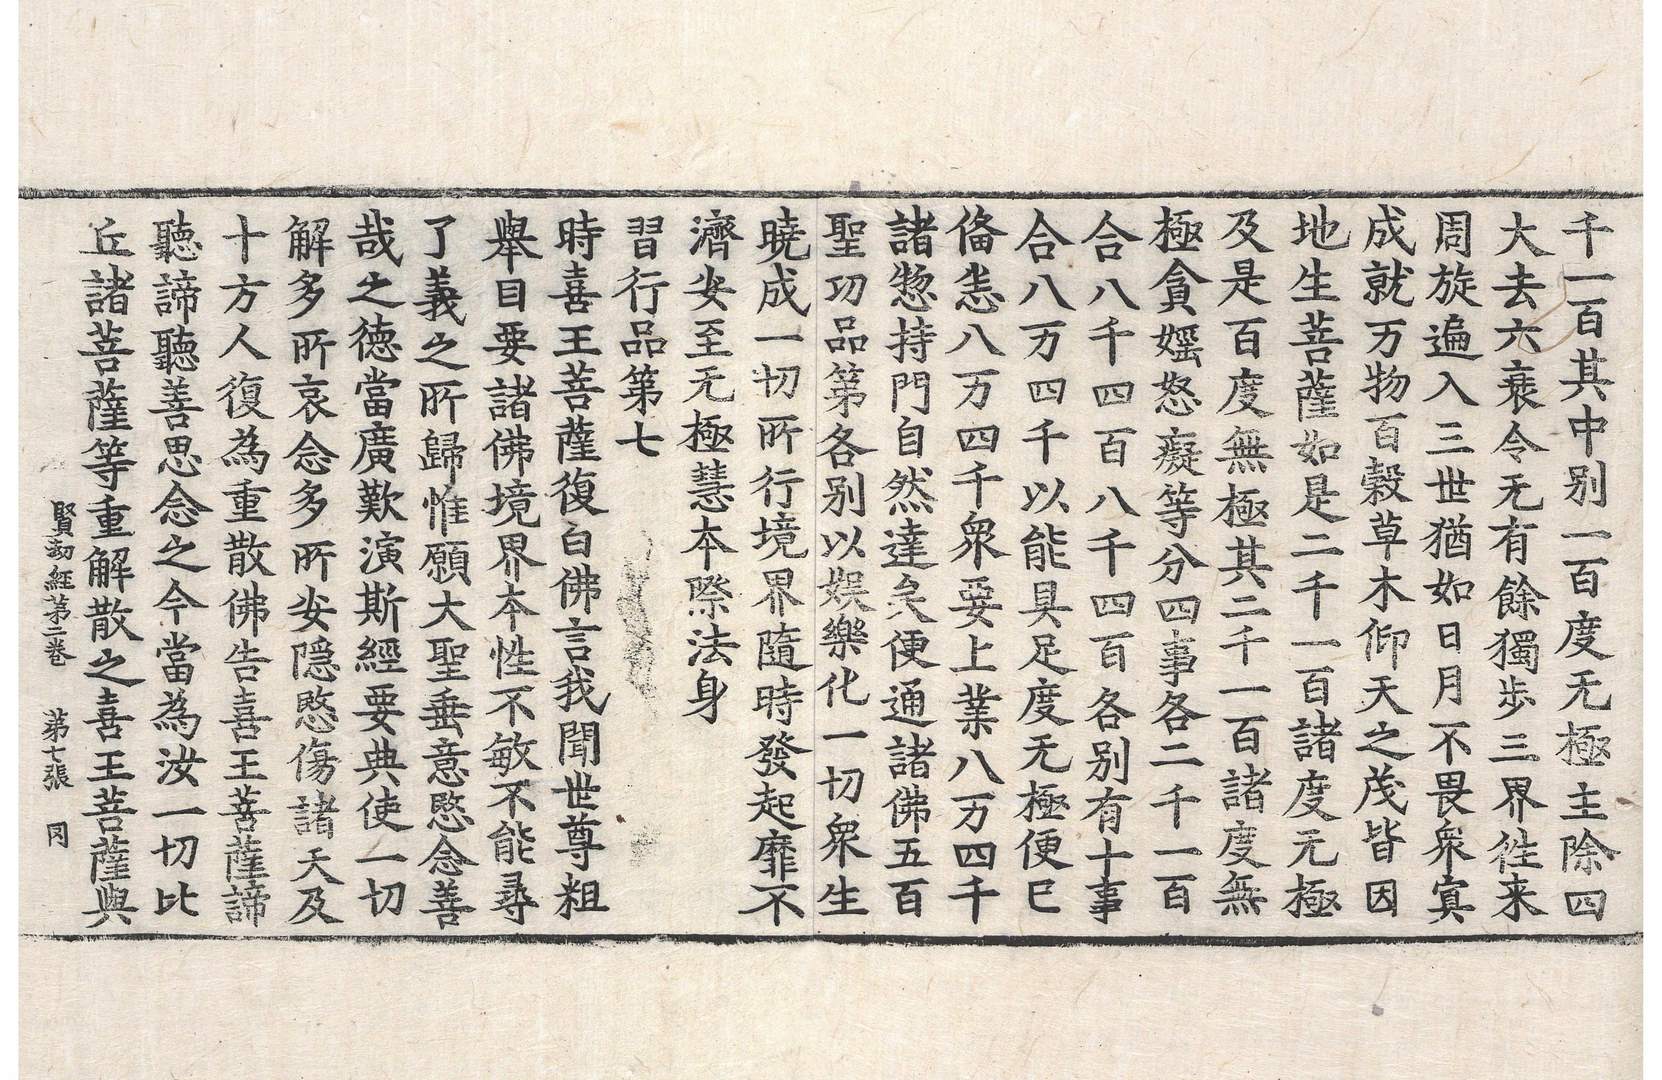 千一百其中别一百度无極主除四
大去六衰令无有餘獨步三界徃来
周旋遍入三世猶如日月不畏衆寘
成就万物百穀草木仰天之茂皆因
地生菩薩如是二千一百諸度无極
及是百度無極其二千一百諸度無
極貪婬怒癡等分四事各二千一百
合八千四百八千四百各别有十事
合八万四千以能具足度无極便已
俻恚八万四千衆要上業八万四千
諸惣持門自然達矣便通諸佛五百
聖功品第各别以娱樂化一切衆生
曉成一切所行境界隨時發起靡不
濟安至无極慧本際法身
習行品第七
時喜王菩薩復白佛言我聞世尊粗
舉目要諸佛境界本性不敏不能尋
了義之所歸惟願大聖垂意愍念善
哉之德當廣歎演斯經要典使一切
解多所哀念多所安隠愍傷諸天及
十方人復為重散佛告喜王菩薩諦
聽諦聽善思念之今當為汝一切比
丘諸菩薩等重解散之喜王菩薩與
賢劫經第二卷 第七張 冈